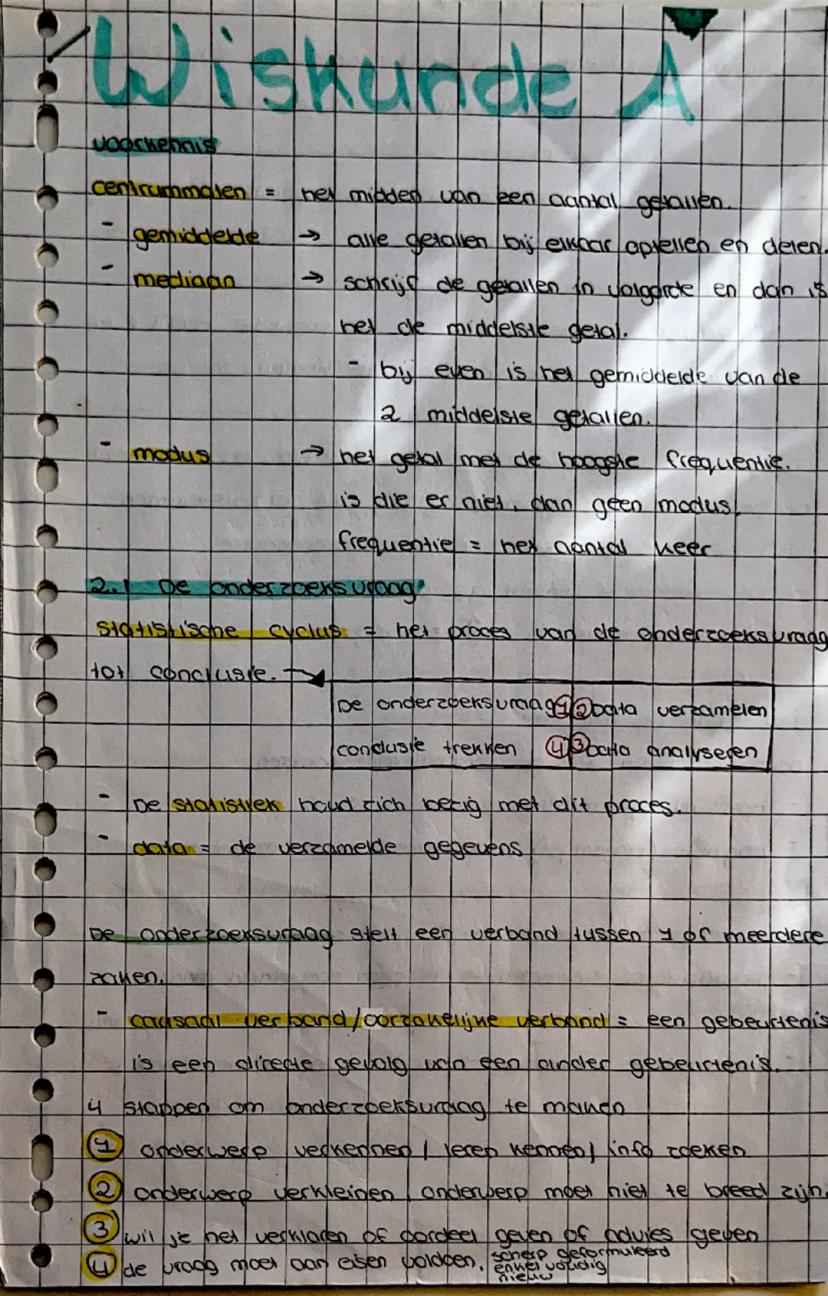 Wiskunde A
voorkennis
centrummaten = het midden van een aantal getallen.
- gemiddelde → alle getallen bij elkaar optellen en delen.
- mediaan → schrijf de getallen in volgorde en dan is
het de middelste getal.
- bij even is het gemiddelde van de
2 middelste getallen.
- modus → het getal met de hoogste frequentie.
is die er niet, dan geen modus
frequentie = het aantal keer
2.1 De onderzoeksvraag
statistische cyclus = het proces van de onderzoeksvraag
tot conclusie. →
De onderzoeksvraag 1 2 Data verzamelen
conclusie trekken 4 3 Data analyseren
- De statistiek houd zich bezig met dit proces.
- data = de verzamelde gegevens
De onderzoeksvraag stelt een verband tussen 1 of meerdere
zaken.
- causaal verband/oorzakelijke verband = een gebeurtenis
is een directe gevolg van een ander gebeurtenis.
4 stappen om onderzoeksvraag te maken
1 onderwerp verkennen / leren kennen / info zoeken
2 onderwerp verkleinen, onderwerp moet niet te breed zijn.
3 wil je het verklaren of oordeel geven of advies geven
4 de vraag moet aan eisen voldoen. scherp geformuleerd
enkelvoudig
nieuw